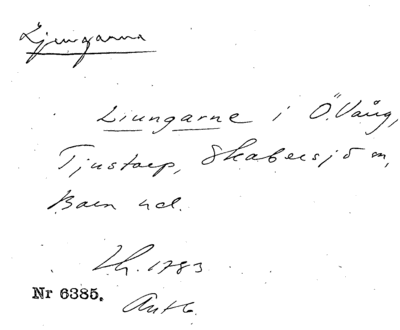 Ljungarna
Liungarne i Ö. Vång,
Tjustorp, Skabersjö sn,
Bara hd.
Lh. 1783
Nr 6385.